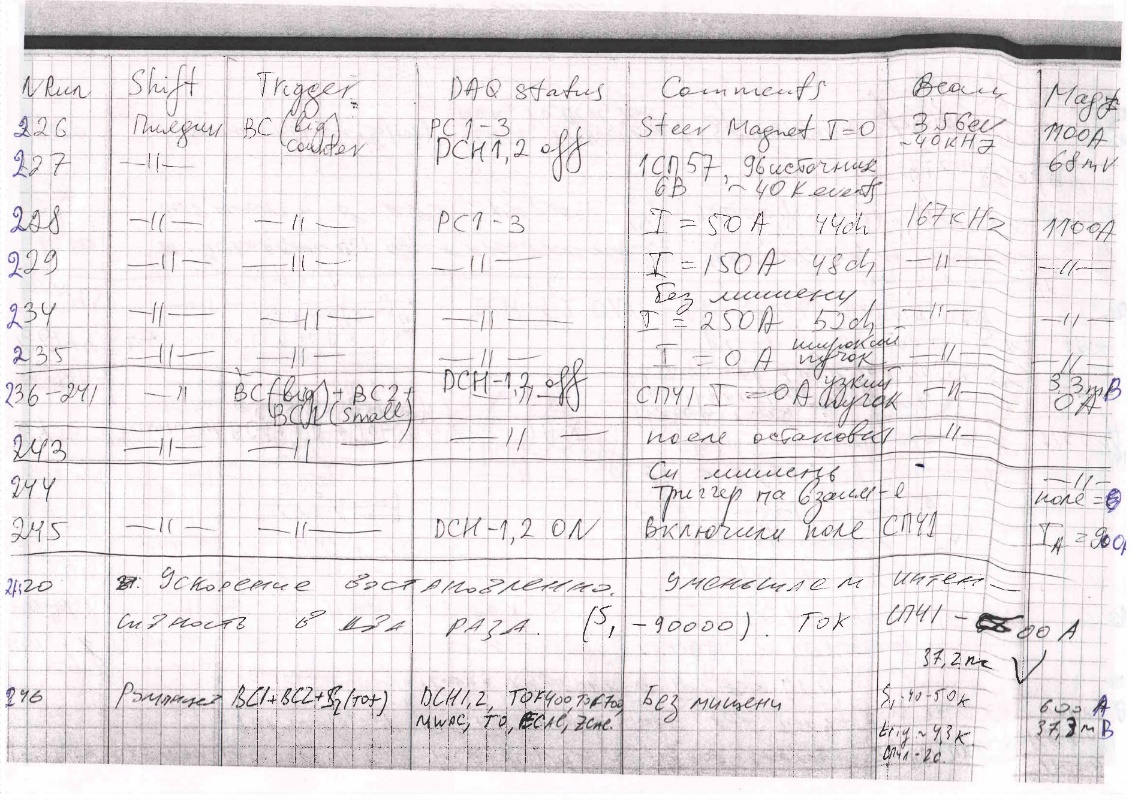 NRun Shift Trigger DAQ status Comments Beam Magn
226 BC (big) counter PC1-3 Steer Magnet I=0 3.5Gev ~40kHz 1100A
227 —11— DCH1,2 off 1СП57, 96источник 6В ~40K events 68mV
228 —11— —11— PC1-3 I = 50A 44ch 167кHz 1100A
229 —11— —11— —11— I = 150A 48ch —11— —11—
без мишени
234 —11— —11— —11— I = 250A 52ch —11— —11—
235 —11— —11— —11— I = 0 A широкий пучок —11— —11—
236-241 —11— BC(big) + BC2+ BC1 (small) DCH-1,2 off СП41 I = 0A узкий пучок —11— 3,3mB 0A
243 —11— —11— —11— после остановки —11—
244 Си мишень триггер на взаим-е —11— поле =0
245 —11— —11— DCH-1,2 ON Включили поле СП41 I_A = 900A
Ускорение восстановленно. Уменьшаем интен
сивность в два раза. (S, -90000). Ток СП41 - 00 A
37,2
246 BC1+BC2+ (TOF) DCH1,2, TOF400, TOF700, Без мишени S, -40-50K 600 A
MWPC, T0, ECAL, ZDC. trig ~ 4,3K 37,3mB